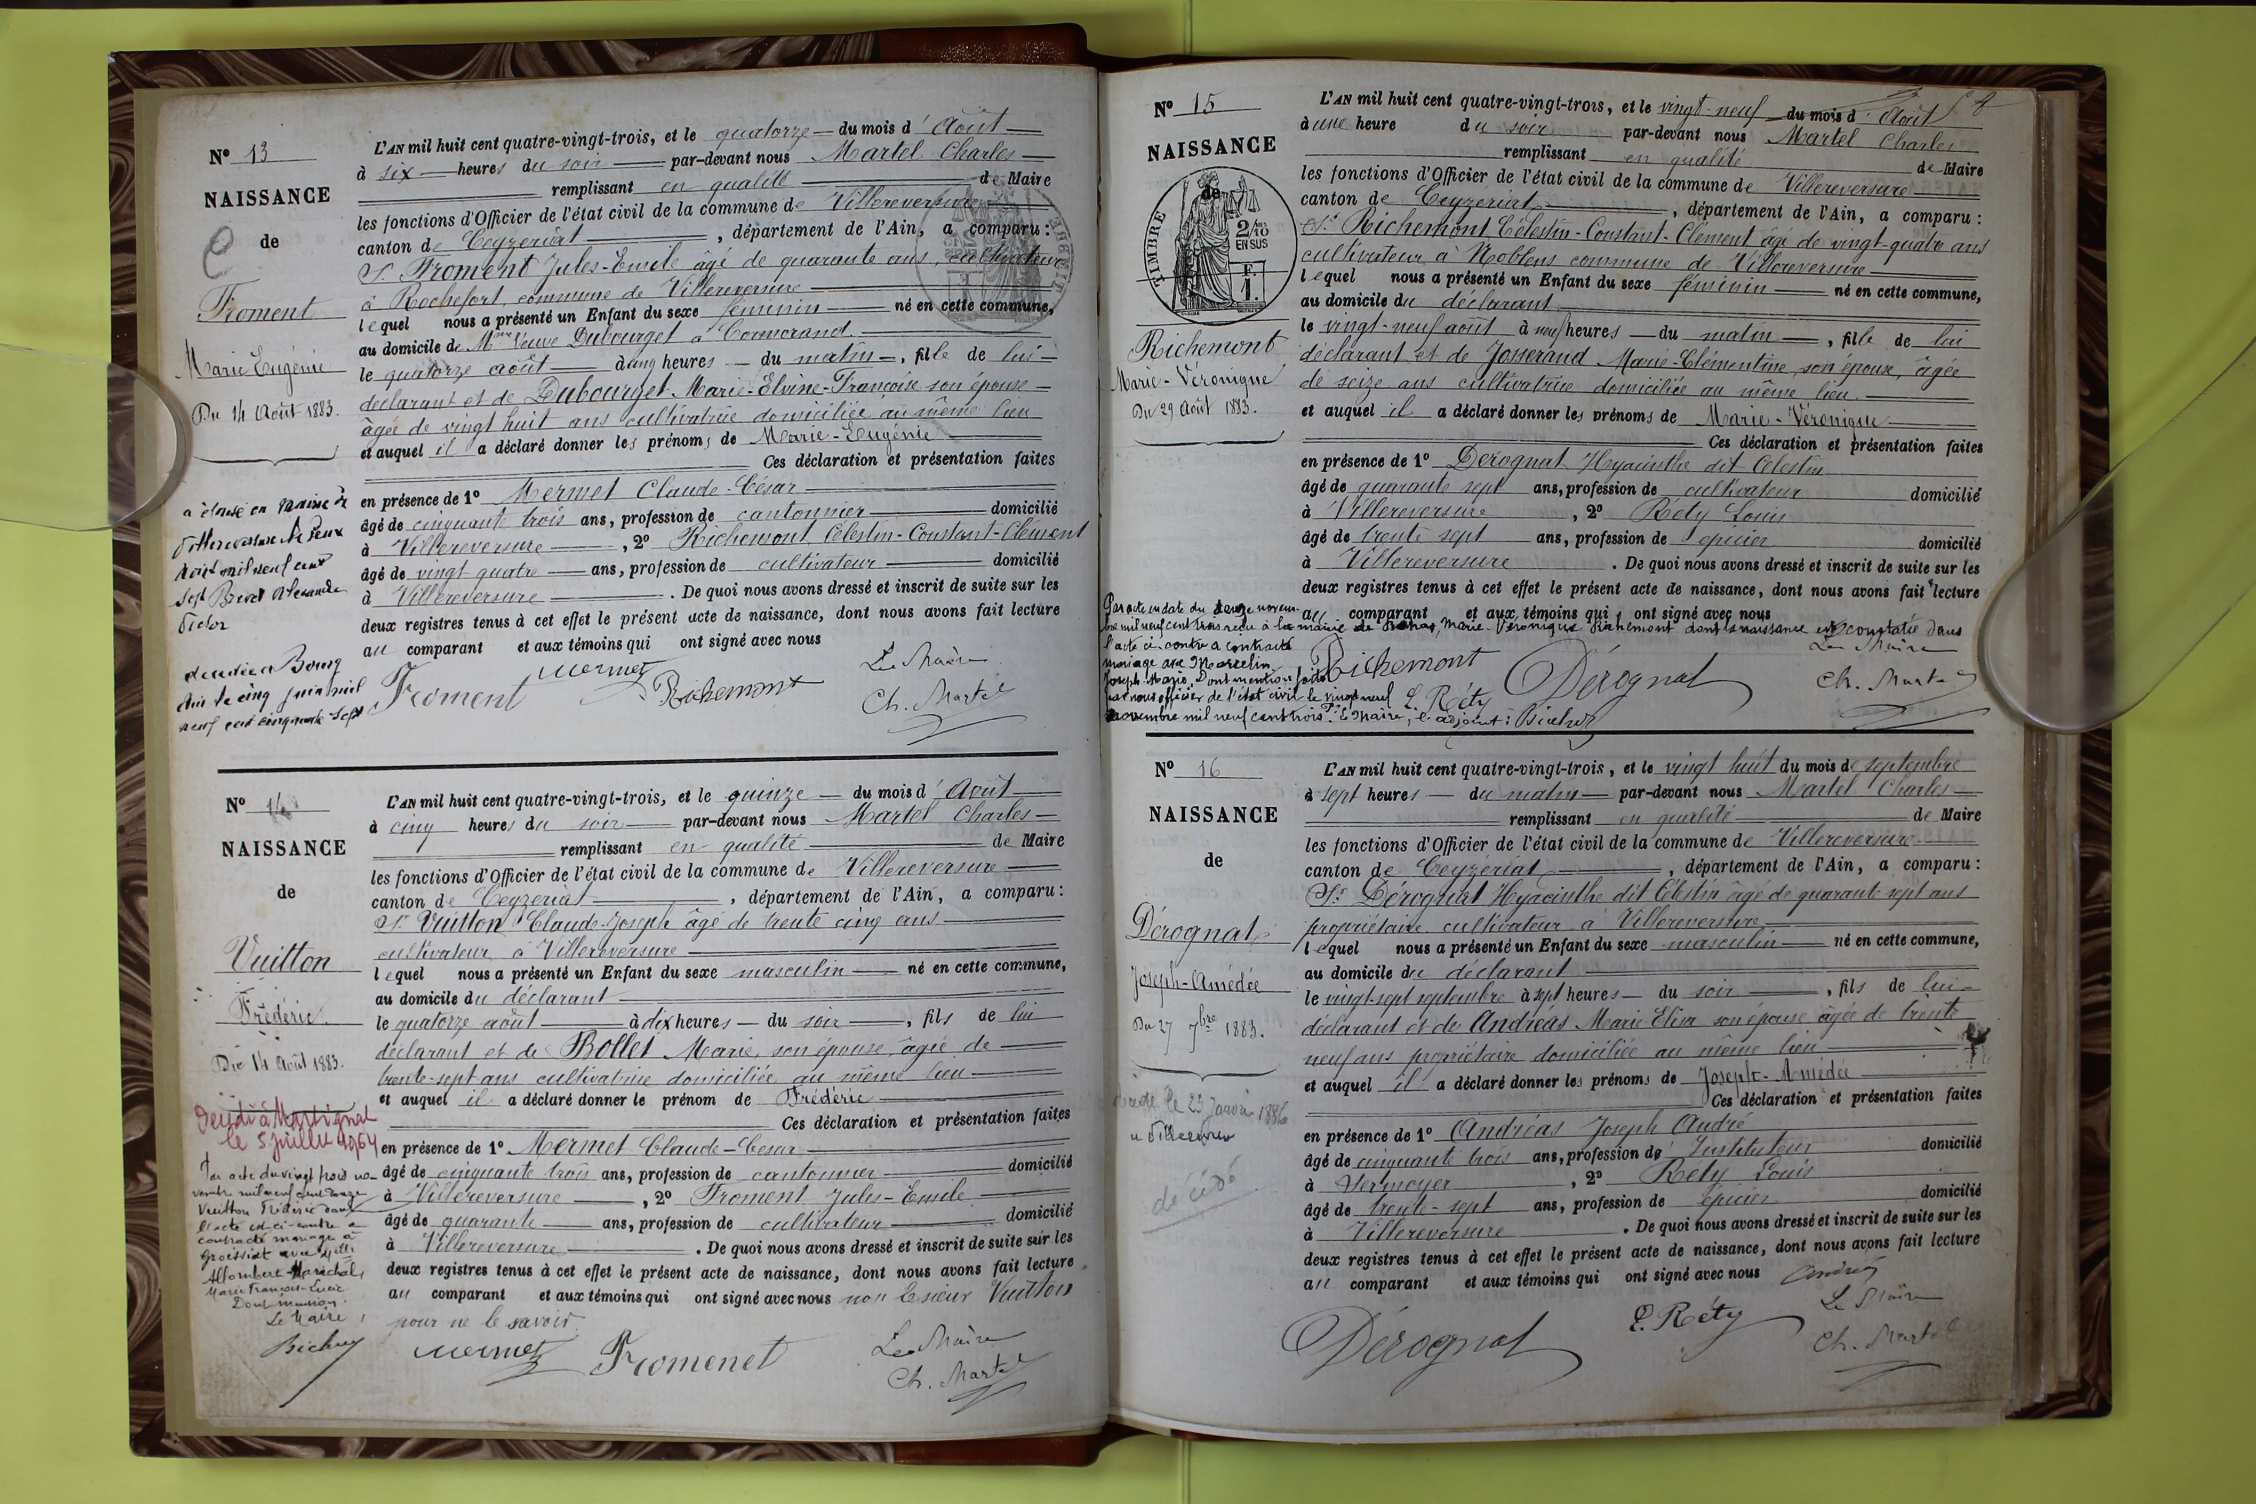 N° 13
NAISSANCE
de
Froment
Marie Eugénie
Du 14 Août 1883.
a épousé en mairie de
Villereversure le deux
août mil neuf cent
sept Brevet Alexandre
Victor
décédée à Bourg
Ain le cinq juin mil
neuf cent cinquante sept
L'AN mil huit cent quatre-vingt-trois, et le quatorze du mois d'Août
à six heures du soir par-devant nous Martel Charles
remplissant en qualité de Maire
les fonctions d'Officier de l'état civil de la commune de Villereversure
canton de Ceyzériat, département de l'Ain, a comparu :
Sr Froment Jules-Emile âgé de quarante ans, cultivateur
à Rochefort, commune de Villereversure
lequel nous a présenté un Enfant du sexe féminin né en cette commune,
au domicile de Mme Veuve Dubourget à Cormorand
le quatorze août à cinq heures du matin, fille de lui
déclarant et de Dubourget Marie-Elvise-Françoise son épouse
âgée de vingt huit ans cultivatrice domiciliée au même lieu
et auquel il a déclaré donner les prénoms de Marie-Eugénie
Ces déclaration et présentation faites
en présence de 1° Mermet Claude-César
âgé de cinquante trois ans, profession de cantonnier domicilié
à Villereversure, 2° Richemont Célestin-Constant-Clément
âgé de vingt quatre ans, profession de cultivateur domicilié
à Villereversure. De quoi nous avons dressé et inscrit de suite sur les
deux registres tenus à cet effet le présent acte de naissance, dont nous avons fait lecture
au comparant et aux témoins qui ont signé avec nous
Froment Mermet Richemont Le Maire
Ch. Martel
N° 14
NAISSANCE
de
Vuitton
Frédéric.
Du 14 Août 1883.
Décédé à Martignat
le 5 juillet 1964
Par acte du vingt trois no-
vembre mil neuf cent douze
Vuitton Frédéric dont
l'acte est ci-contre a
contracté mariage à
Groissiat avec Melle
Allombert-Maréchal,
Marie François-Lucie
Dont mention.
Le Maire,
L'AN mil huit cent quatre-vingt-trois, et le quinze du mois d'Août
à cinq heures du soir par-devant nous Martel Charles
remplissant en qualité de Maire
les fonctions d'Officier de l'état civil de la commune de Villereversure
canton de Ceyzériat, département de l'Ain, a comparu :
Sr Vuitton Claude-Joseph âgé de trente cinq ans
cultivateur à Villereversure
lequel nous a présenté un Enfant du sexe masculin né en cette commune,
au domicile du déclarant
le quatorze août à dix heures du soir, fils de lui
déclarant et de Bollet Marie, son épouse, âgée de
trente-sept ans cultivatrice domiciliée au même lieu
et auquel il a déclaré donner le prénom de Frédéric
Ces déclaration et présentation faites
en présence de 1° Mermet Claude-César
âgé de cinquante trois ans, profession de cantonnier domicilié
à Villereversure, 2° Froment Jules-Emile
âgé de quarante ans, profession de cultivateur domicilié
à Villereversure. De quoi nous avons dressé et inscrit de suite sur les
deux registres tenus à cet effet le présent acte de naissance, dont nous avons fait lecture
au comparant et aux témoins qui ont signé avec nous non le sieur Vuitton
pour ne le savoir.
Mermet Fromenet Le Maire
Ch. Martel
N° 15
NAISSANCE
de
TIMBRE
2/10
EN SUS
F.
1.
Richemont
Marie-Véronique
Du 29 Août 1883.
L'AN mil huit cent quatre-vingt-trois, et le vingt-neuf du mois d'Août
à une heure du soir par-devant nous Martel Charles
remplissant en qualité de Maire
les fonctions d'Officier de l'état civil de la commune de Villereversure
canton de Ceyzériat, département de l'Ain, a comparu :
Sr Richemont Célestin-Constant-Clément âgé de vingt-quatre ans
cultivateur à Noblens commune de Villereversure
lequel nous a présenté un Enfant du sexe féminin né en cette commune,
au domicile du déclarant
le vingt-neuf août à neuf heures du matin, fille de lui
déclarant et de Josserand Marie-Clémentine, son épouse, âgée
de seize ans cultivatrice domiciliée au même lieu
et auquel il a déclaré donner les prénoms de Marie-Véronique
Ces déclaration et présentation faites
en présence de 1° Dérognat Hyacinthe dit Célestin
âgé de quarante sept ans, profession de cultivateur domicilié
à Villereversure, 2° Réty Louis
âgé de trente sept ans, profession de épicier domicilié
à Villereversure. De quoi nous avons dressé et inscrit de suite sur les
deux registres tenus à cet effet le présent acte de naissance, dont nous avons fait lecture
au comparant et aux témoins qui ont signé avec nous
Par acte en date du douze novem-
bre mil neuf cent trois reçu à la mairie de Marie-Véronique Richemont dont la naissance est constatée dans
l'acte ci-contre a contracté
mariage avec Marcelin
Joseph Marie, Dont mention faite
par nous officier de l'état civil le vingt neuf
novembre mil neuf cent trois. Pr. le Maire, l'adjoint :
Richemont L. Réty Dérognat Le Maire
Ch. Martel
N° 16
NAISSANCE
de
Dérognat
Joseph-Amédée
Du 27 7bre 1883.
décédé le 23 Janvier 1886
à Villereversure
décédé
L'AN mil huit cent quatre-vingt-trois, et le vingt huit du mois de septembre
à sept heures du matin par-devant nous Martel Charles
remplissant en qualité de Maire
les fonctions d'Officier de l'état civil de la commune de Villereversure
canton de Ceyzériat, département de l'Ain, a comparu :
Sr Dérognat Hyacinthe dit Célestin âgé de quarante sept ans
propriétaire cultivateur à Villereversure
lequel nous a présenté un Enfant du sexe masculin né en cette commune,
au domicile du déclarant
le vingt-sept septembre à sept heures du soir, fils de lui
déclarant et de Andréas Marie Elisa son épouse âgée de trente
neuf ans propriétaire domiciliée au même lieu
et auquel il a déclaré donner les prénoms de Joseph-Amédée
Ces déclaration et présentation faites
en présence de 1° Andréas Joseph André
âgé de cinquante trois ans, profession de Instituteur domicilié
à Sermoyer, 2° Réty Louis
âgé de trente-sept ans, profession de épicier domicilié
à Villereversure. De quoi nous avons dressé et inscrit de suite sur les
deux registres tenus à cet effet le présent acte de naissance, dont nous avons fait lecture
au comparant et aux témoins qui ont signé avec nous Andréas
Dérognat L. Réty Le Maire
Ch. Martel